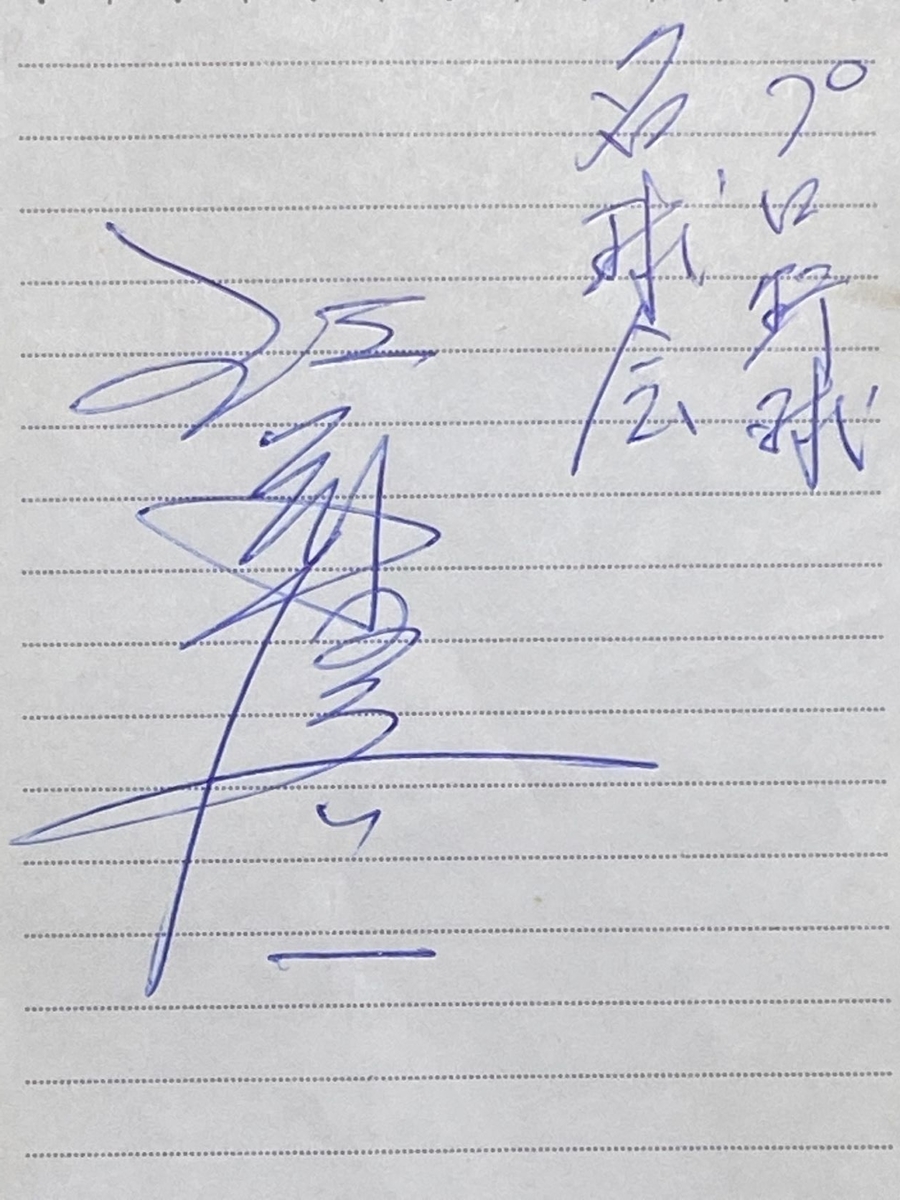 プロ野球
名球会
江藤慎一